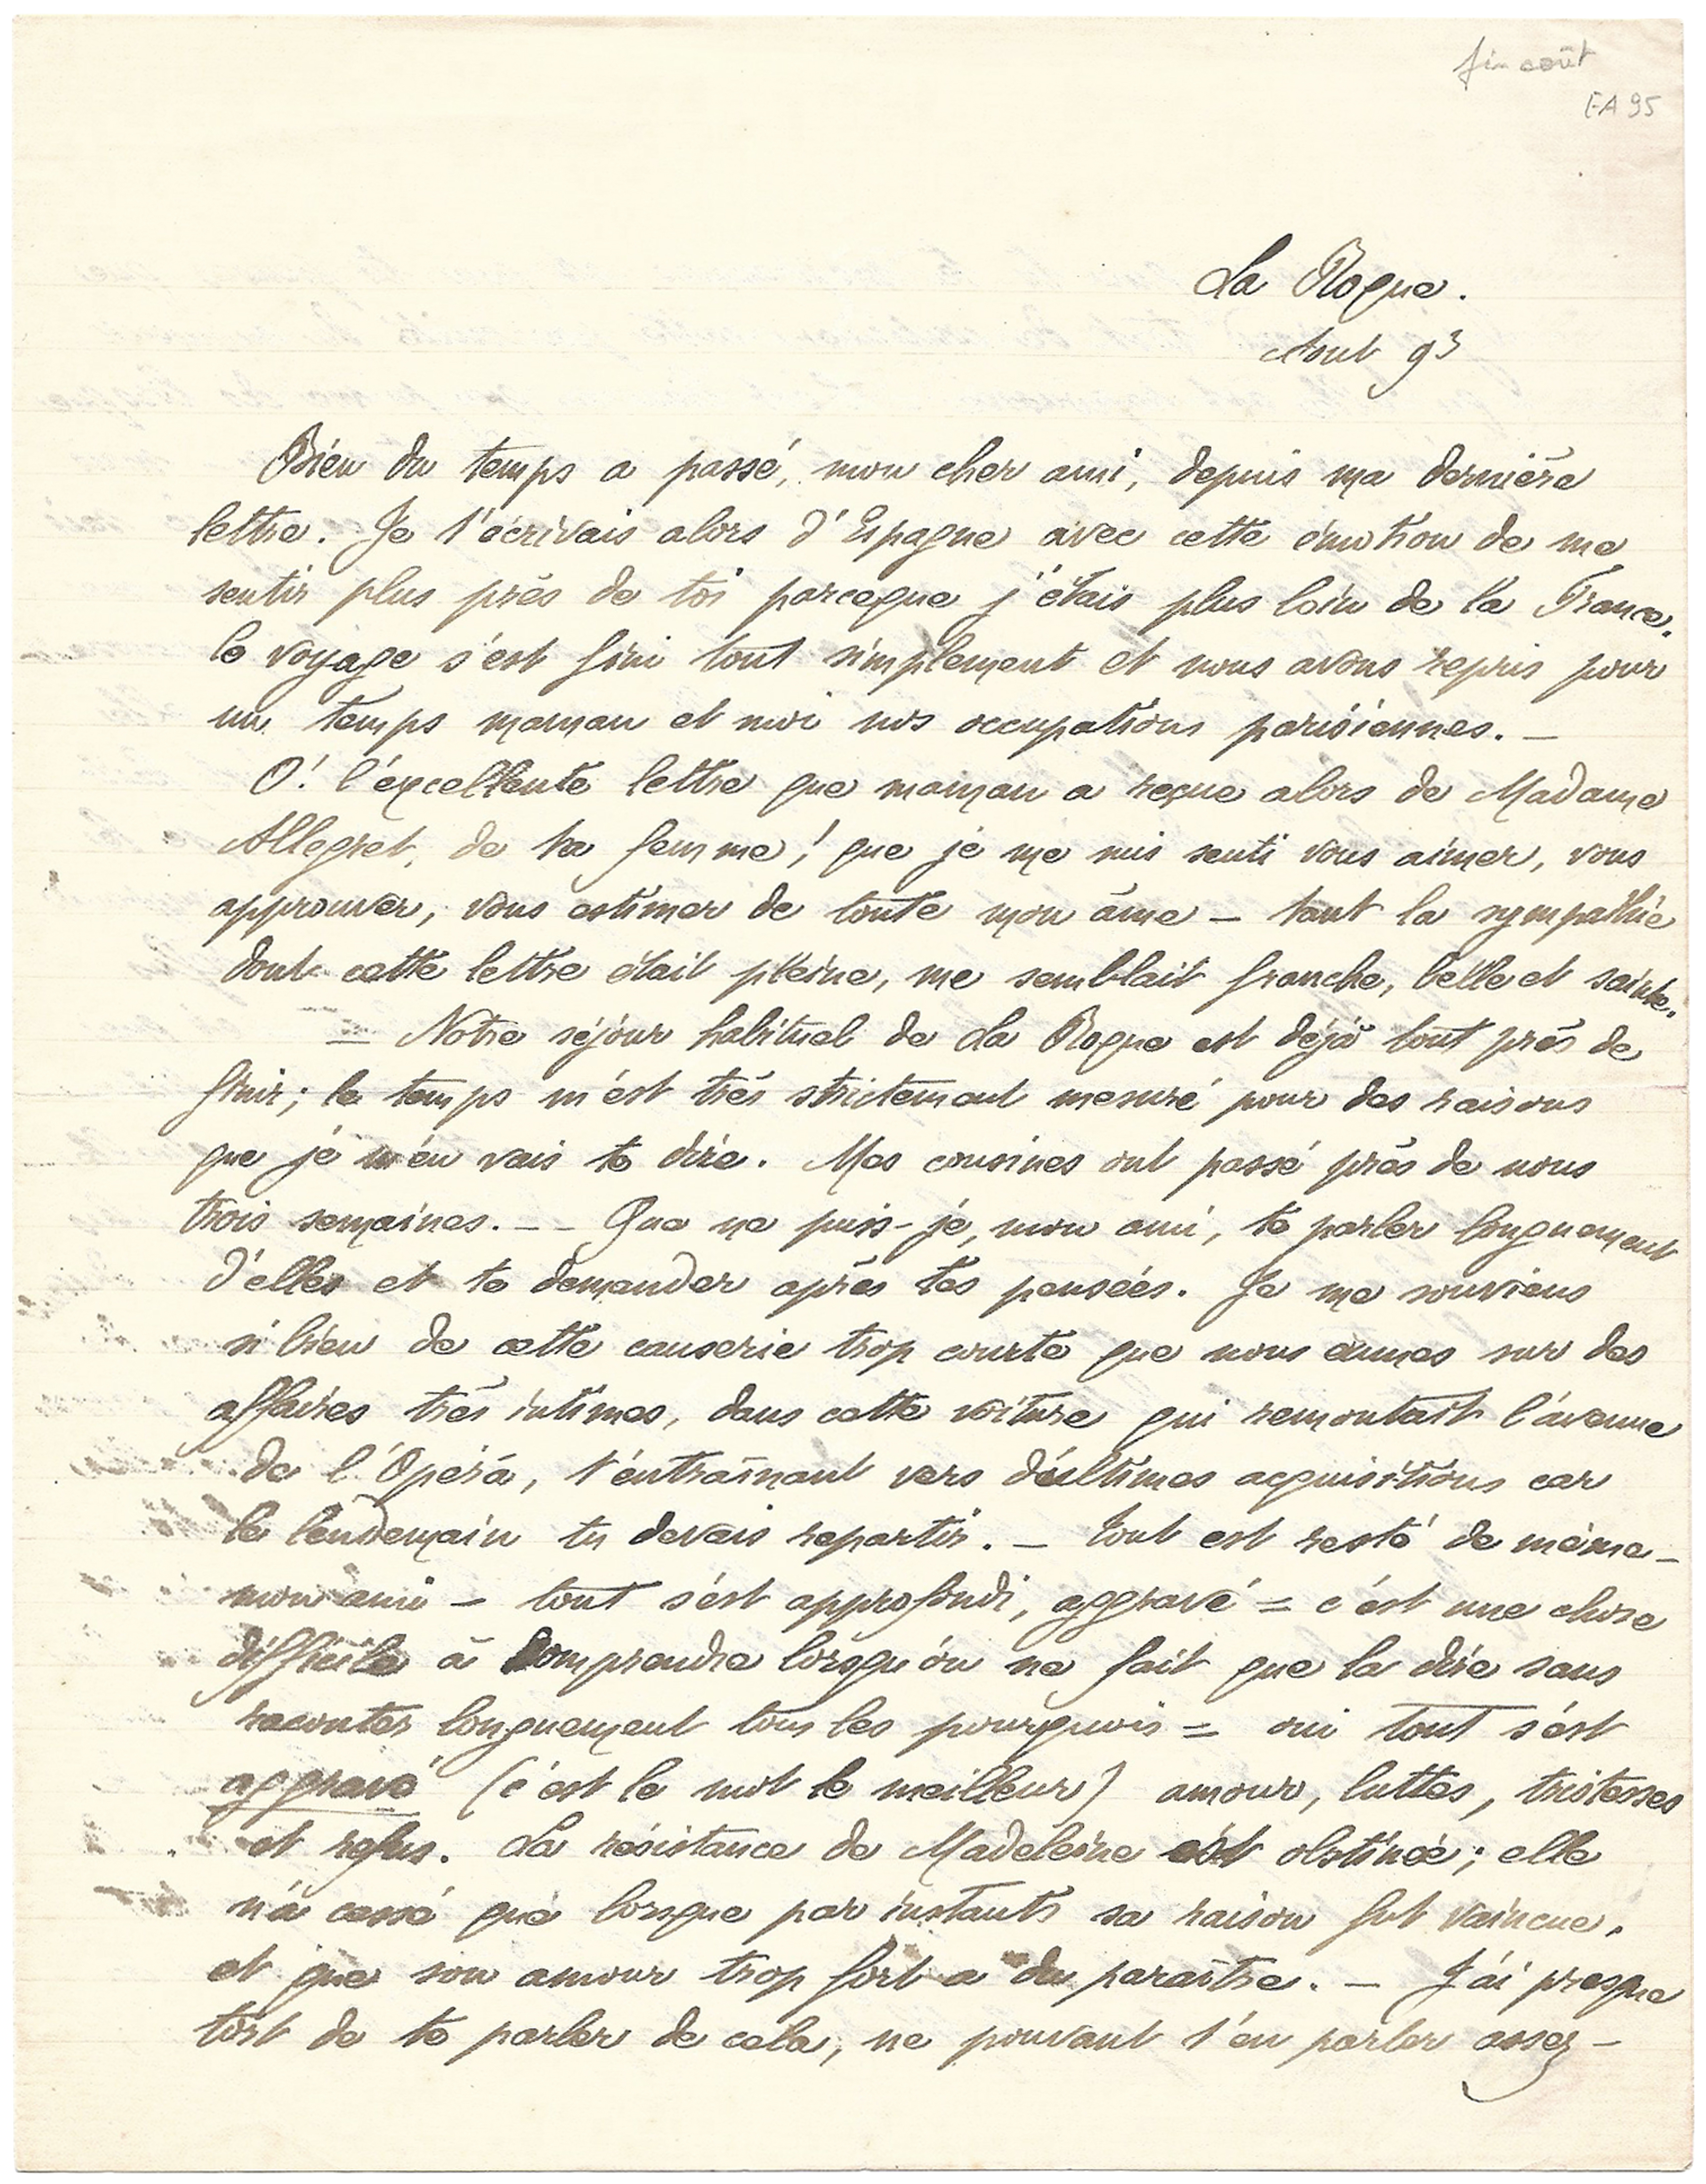 fin août
EA 95
La Roque.
Aout 93
Bien du temps a passé, mon cher ami, depuis ma dernière
lettre. Je t'écrivais alors d'Espagne avec cette émotion de me
sentir plus près de toi parceque j'étais plus loin de la France.
le voyage s'est fini tout simplement et nous avons repris pour
un temps maman et moi nos occupations parisiennes. —
O! l'excellente lettre que maman a reçue alors de Madame
Allegret, de ta femme! que je me suis senti vous aimer, vous
approuver, vous estimer de toute mon âme — tant la sympathie
dont cette lettre était pleine, me semblait franche, belle et sainte.
= Notre séjour habituel de La Roque est déjà tout près de
finir; le temps m'est très strictement mesuré pour des raisons
que je m'en vais te dire. Mes cousines ont passé près de nous
trois semaines. — — Que ne puis-je, mon ami, te parler longuement
d'elles et te demander après tes pensées. Je me souviens
si bien de cette causerie trop courte que nous eumes sur des
affaires très intimes, dans cette voiture qui remontait l'avenue
de l'Opéra, t'entraînant vers d'ultimes acquisitions car
le lendemain tu devais repartir. — tout est resté de même —
mon ami — tout s'est approfondi, aggravé = c'est une chose
difficile à comprendre lorsqu'on ne fait que la dire sans
raconter longuement tous les pourquois = oui tout s'est
aggravé (c'est le mot le meilleur) amour, luttes, tristesses
et refus. La résistance de Madeleine est obstinée; elle
n'a cessé que lorsque par instants sa raison fut vaincue,
et que son amour trop fort a du paraître. — J'ai presque
tort de te parler de cela, ne pouvant t'en parler assez —